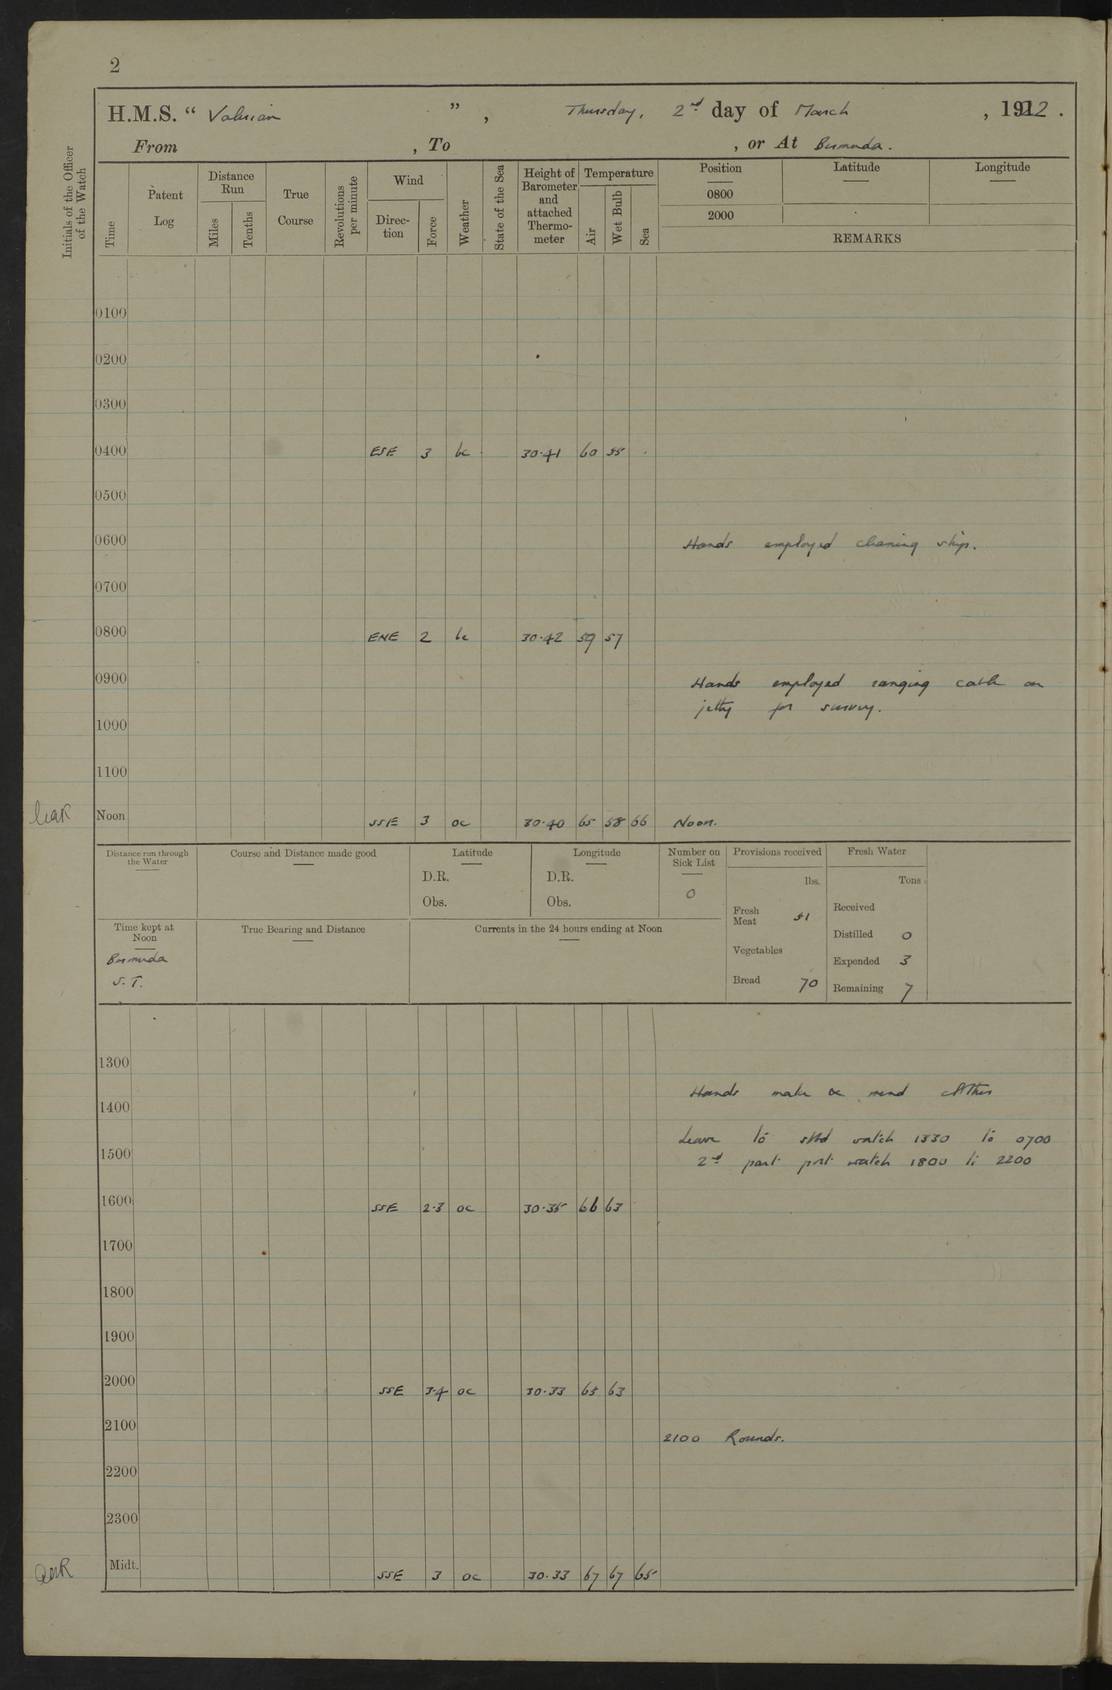 2
H.M.S. “ Valerian ” , Thursday, 2nd day of March , 1922 .
From , To , or At Bermuda.
Initials of the Officer of the Watch
Time
Patent Log
Distance Run
Miles
Tenths
True Course
Revolutions per minute
Wind
Direc-tion
Force
Weather
State of the Sea
Height of Barometer and attached Thermo-meter
Temperature
Air
Wet Bulb
Sea
Position Latitude Longitude
0800
2000
REMARKS
0100
0200
0300
0400 ESE 3 bc 30.41 60 55
0500
0600 Hands employed cleaning ship.
0700
0800 ENE 2 bc 30.42 59 57
0900 Hands employed ranging cable on
jetty for survey.
1000
1100
Noon SSE 3 oc 30.40 65 58 66 Noon.
Distance run through the Water
Course and Distance made good
Latitude
D.R.
Obs.
Longitude
D.R.
Obs.
Number on Sick List
0
Provisions received
lbs.
Fresh Meat 41
Vegetables
Bread 70
Fresh Water
Tons
Received
Distilled 0
Expended 3
Remaining 7
Time kept at Noon
Bermuda
S.T.
True Bearing and Distance
Currents in the 24 hours ending at Noon
1300
Hands make & mend clothes
1400
Leave to stbd watch 1330 to 0700
1500
2nd part port watch 1800 to 2200
1600 SSE 2.3 oc 30.35 66 63
1700
1800
1900
2000 SSE 3.4 oc 30.33 65 63
2100
2100 Rounds.
2200
2300
Midt. SSE 3 oc 30.33 67 67 65